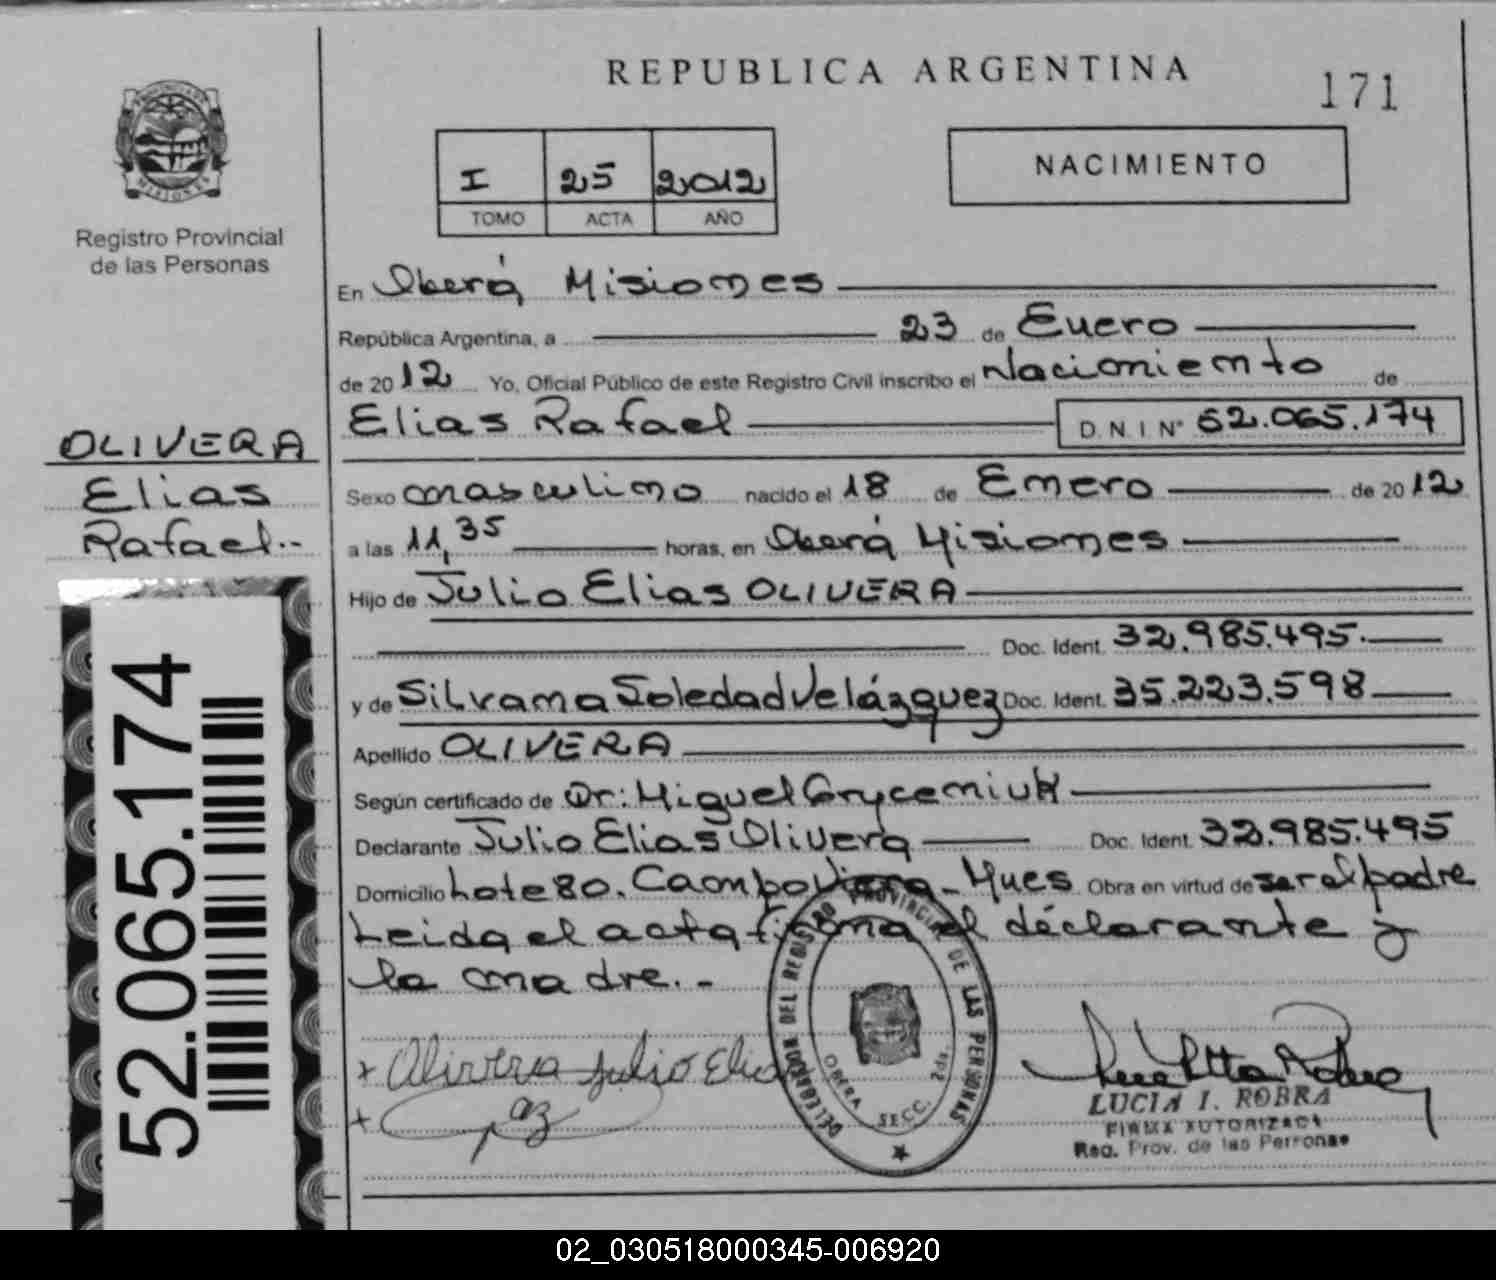 REPUBLICA ARGENTINA
171
PROVINCIA DE
MISIONES
Registro Provincial
de las Personas
I 25 2012
TOMO ACTA AÑO
NACIMIENTO
En Oberá Misiones
República Argentina, a 23 de Enero
de 2012 Yo, Oficial Público de este Registro Civil inscribo el Nacimiento de
Elias Rafael D.N.I. N° 52.065.174
OLIVERA
Elias
Rafael.-
Sexo masculino nacido el 18 de Enero de 2012
a las 11,35 horas, en Oberá Misiones
Hijo de Julio Elias OLIVERA
Doc. Ident. 32.985.495.
y de Silvana Soledad Velázquez Doc. Ident. 35.223.598
Apellido OLIVERA
Según certificado de Dr: Miguel Gryceniuk
Declarante Julio Elias Olivera Doc. Ident. 32.985.495
Domicilio Lote 80. Campo Viera - Mnes Obra en virtud de ser el padre
Leida el acta firma el declarante y
la madre.-
52.065.174
x Olivera Julio Elias
x
DELEGADOR DEL REGISTRO PROVINCIAL DE LAS PERSONAS
OBERA SECC. 2da.
LUCIA I. ROBRA
FIRMA AUTORIZADA
Reg. Prov. de las Personas
02_030518000345-006920